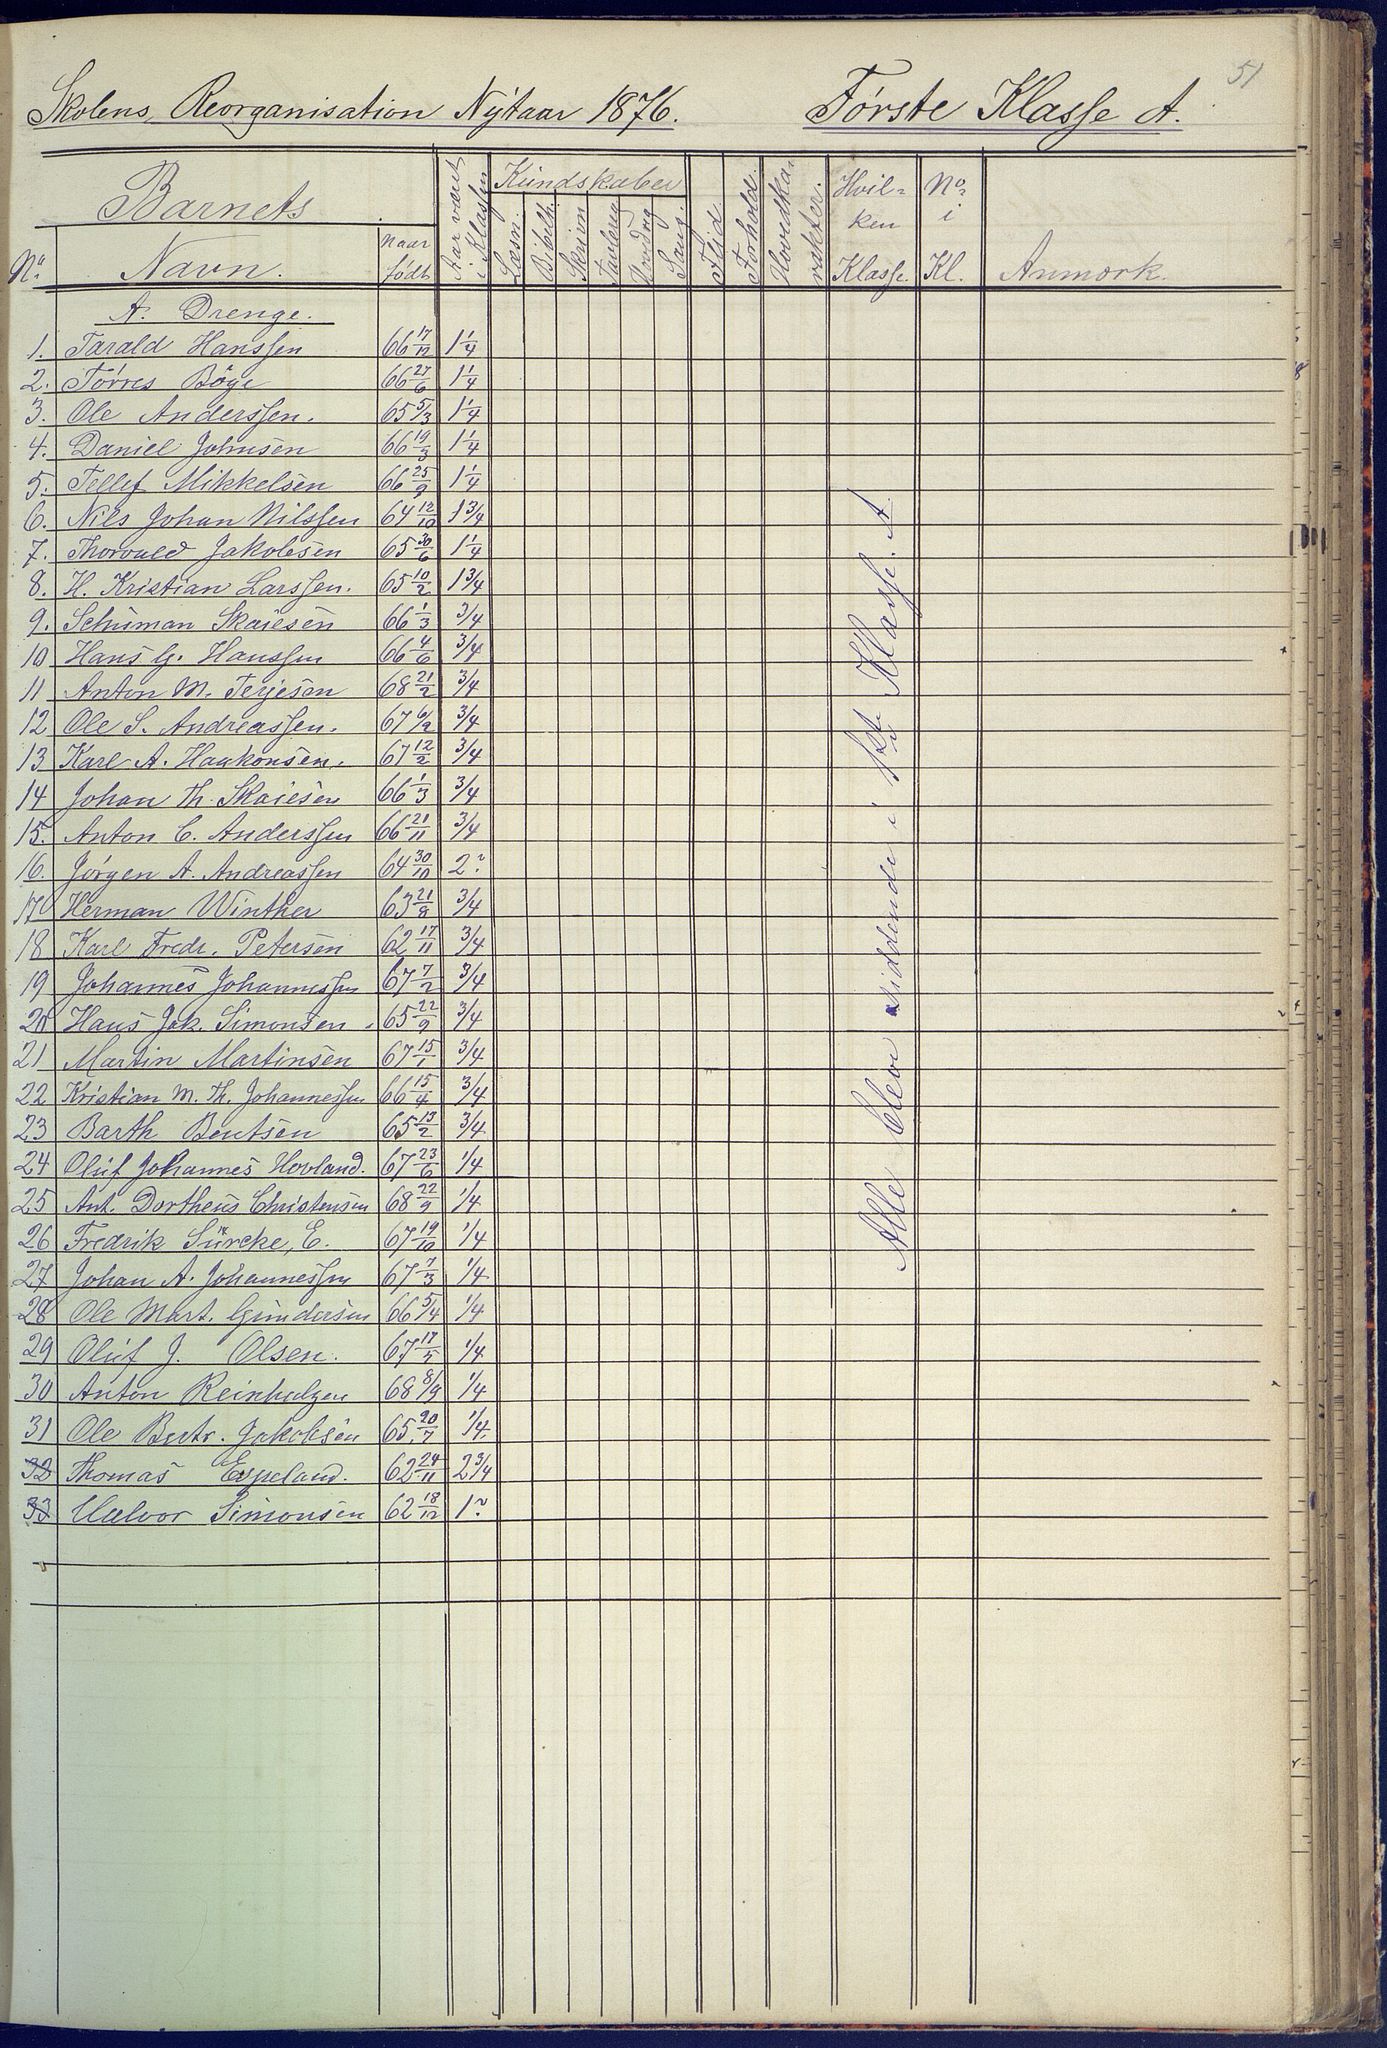 51
Skolens Reorganisation Nytaar 1876. Første Klasse A.
Barnets
Aar været i Klassen
Kundskaber
Flid
Forhold.
Hovedkarakter.
Hvilken Klasse.
No. i Kl.
Anmærk.
No. Navn. Naar født
Læsn. Bibelh. Skrivn Sang.
A. Drenge.
1. Tarald Hanssen 66 17/12 1 1/4
2. Tørres Böge 66 27/6 1 1/4
3. Ole Anderssen. 65 5/3 1 1/4
4. Daniel Johnsen 66 19/3 1 1/4
5. Tellef Mikkelsen 66 25/9 1 1/4
6. Nils Johan Nilssen 64 12/10 1 3/4
7. Thorvald Jakobsen 65 30/6 1 1/4
8. H. Kristian Larssen. 65 10/2 1 3/4
9. Schuman Skaiesen 66 1/3 3/4
10 Hans G. Hanssen 66 4/6 3/4
11 Anton M. Terjesen 68 21/2 3/4
12 Ole S. Andreassen. 67 6/9 3/4
13 Karl A. Haakonsen. 67 12/2 3/4
14 Johan Th. Skaiesen 66 1/3 3/4
15. Anton C. Anderssen 66 21/11 3/4
16. Jørgen A. Andreassen 64 30/10 2
17 Herman Winther 63 21/8 3/4
18 Karl Fredr. Petersen 62 17/11 3/4
19 Johannes Johannessen 67 7/2 3/4
20 Hans Jak. Simonsen. 65 22/9 3/4
21 Martin Martinsen 67 15/1 3/4
22 Kristian M. Th. Johannessen 66 15/4 3/4
23 Barth Bentsen 65 13/2 3/4
24 Oluf Johannes Hovland. 67 23/6 1/4
25 Ant. Dortheus Christensen 68 22/9 1/4
26 Fredrik Sürcke, E. 67 19/10 1/4
27 Johan A. Johannessen 67 7/3 1/4
28 Ole Mart. Gundersen 66 5/4 1/4
29 Oluf J. Olsen. 67 17/5 1/4
30 Anton Reinholtzen 68 8/9 1/4
31 Ole Bertr. Jakobsen 65 20/7 1/4
32 Thomas Espeland. 62 24/11 2 3/4
33 Halvor Simonsen 62 18/12 1
Alle bleve siddende i 1ste Klasse A